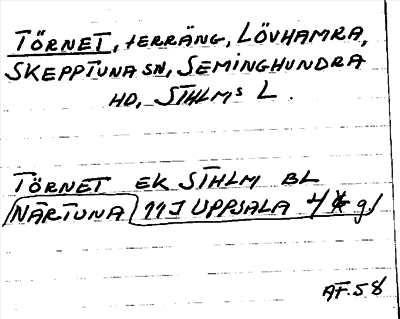 TÖRNET, terräng, LÖVHAMRA,
SKEPPTUNA SN, SEMINGHUNDRA
HD, STHLMS L.
TÖRNET EK STHLM BL
NÄRTUNA 11J UPPSALA 4 g
AF.58